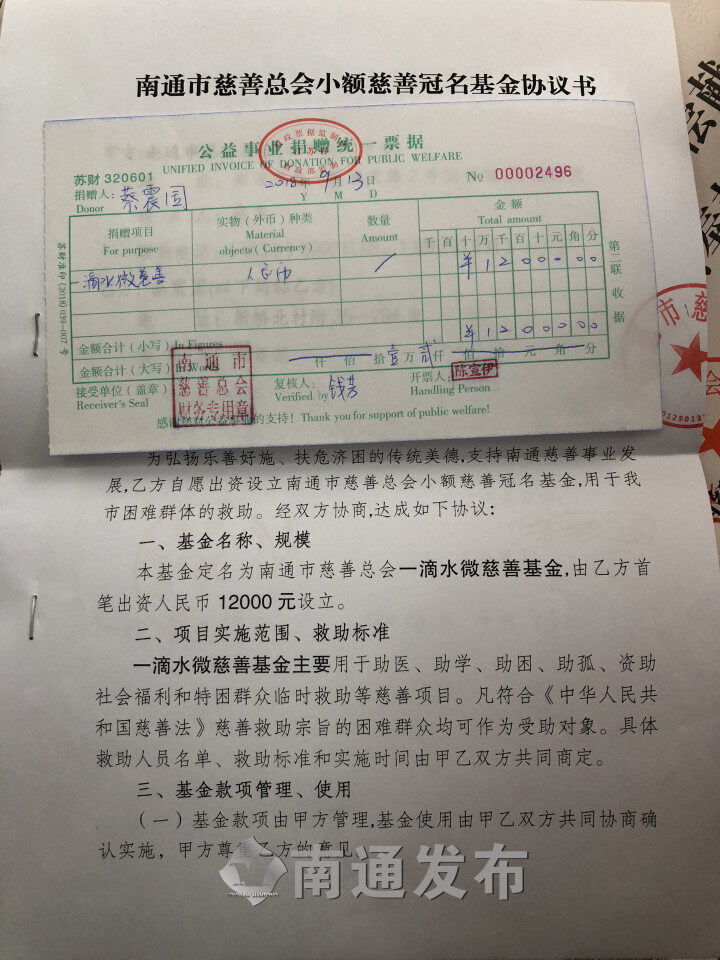 南通市慈善总会小额慈善冠名基金协议书
公益事业捐赠统一票据
UNIFIED INVOICE OF DONATION FOR PUBLIC WELFARE
苏财 320601
2018年9月13日
Y M D
№ 00002496
捐赠人：蔡震国
Donor
捐赠项目
For purpose
实物（外币）种类
Material
objects (Currency)
数量
Amount
金额
Total amount
千 百 十 万 千 百 十 元 角 分
一滴水微慈善 人民币 / ¥ 1 2 0 0 0 0 0
金额合计（小写）In Figures ¥ 1 2 0 0 0 0 0
金额合计（大写）In Words 仟 佰 拾 壹万 贰仟 佰 拾 元 角 分
接受单位（盖章）
Receiver's Seal
复核人：
Verified by
开票人：陈宣伊
Handling Person
感谢您对公益事业的支持！Thank you for support of public welfare!
南通市
慈善总会
财务专用章
苏财准印 (2018) 039-007 号
第二联 收据
为弘扬乐善好施、扶危济困的传统美德,支持南通慈善事业发
展,乙方自愿出资设立南通市慈善总会小额慈善冠名基金,用于我
市困难群体的救助。经双方协商,达成如下协议:
一、基金名称、规模
本基金定名为南通市慈善总会一滴水微慈善基金,由乙方首
笔出资人民币 12000 元设立。
二、项目实施范围、救助标准
一滴水微慈善基金主要用于助医、助学、助困、助孤、资助
社会福利和特困群众临时救助等慈善项目。凡符合《中华人民共
和国慈善法》慈善救助宗旨的困难群众均可作为受助对象。具体
救助人员名单、救助标准和实施时间由甲乙双方共同商定。
三、基金款项管理、使用
（一）基金款项由甲方管理,基金使用由甲乙双方共同协商确
认实施，甲方尊重乙方的意见
南通发布